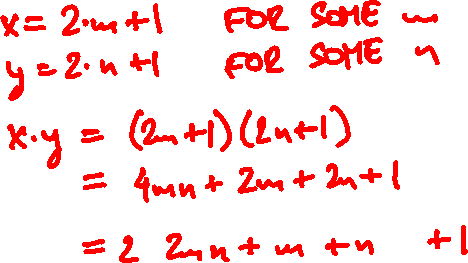 x = 2·m+1 FOR SOME m
y = 2·n+1 FOR SOME n
x·y = (2m+1)(2n+1)
= 4mn + 2m + 2n + 1
= 2 2mn + m + n + 1